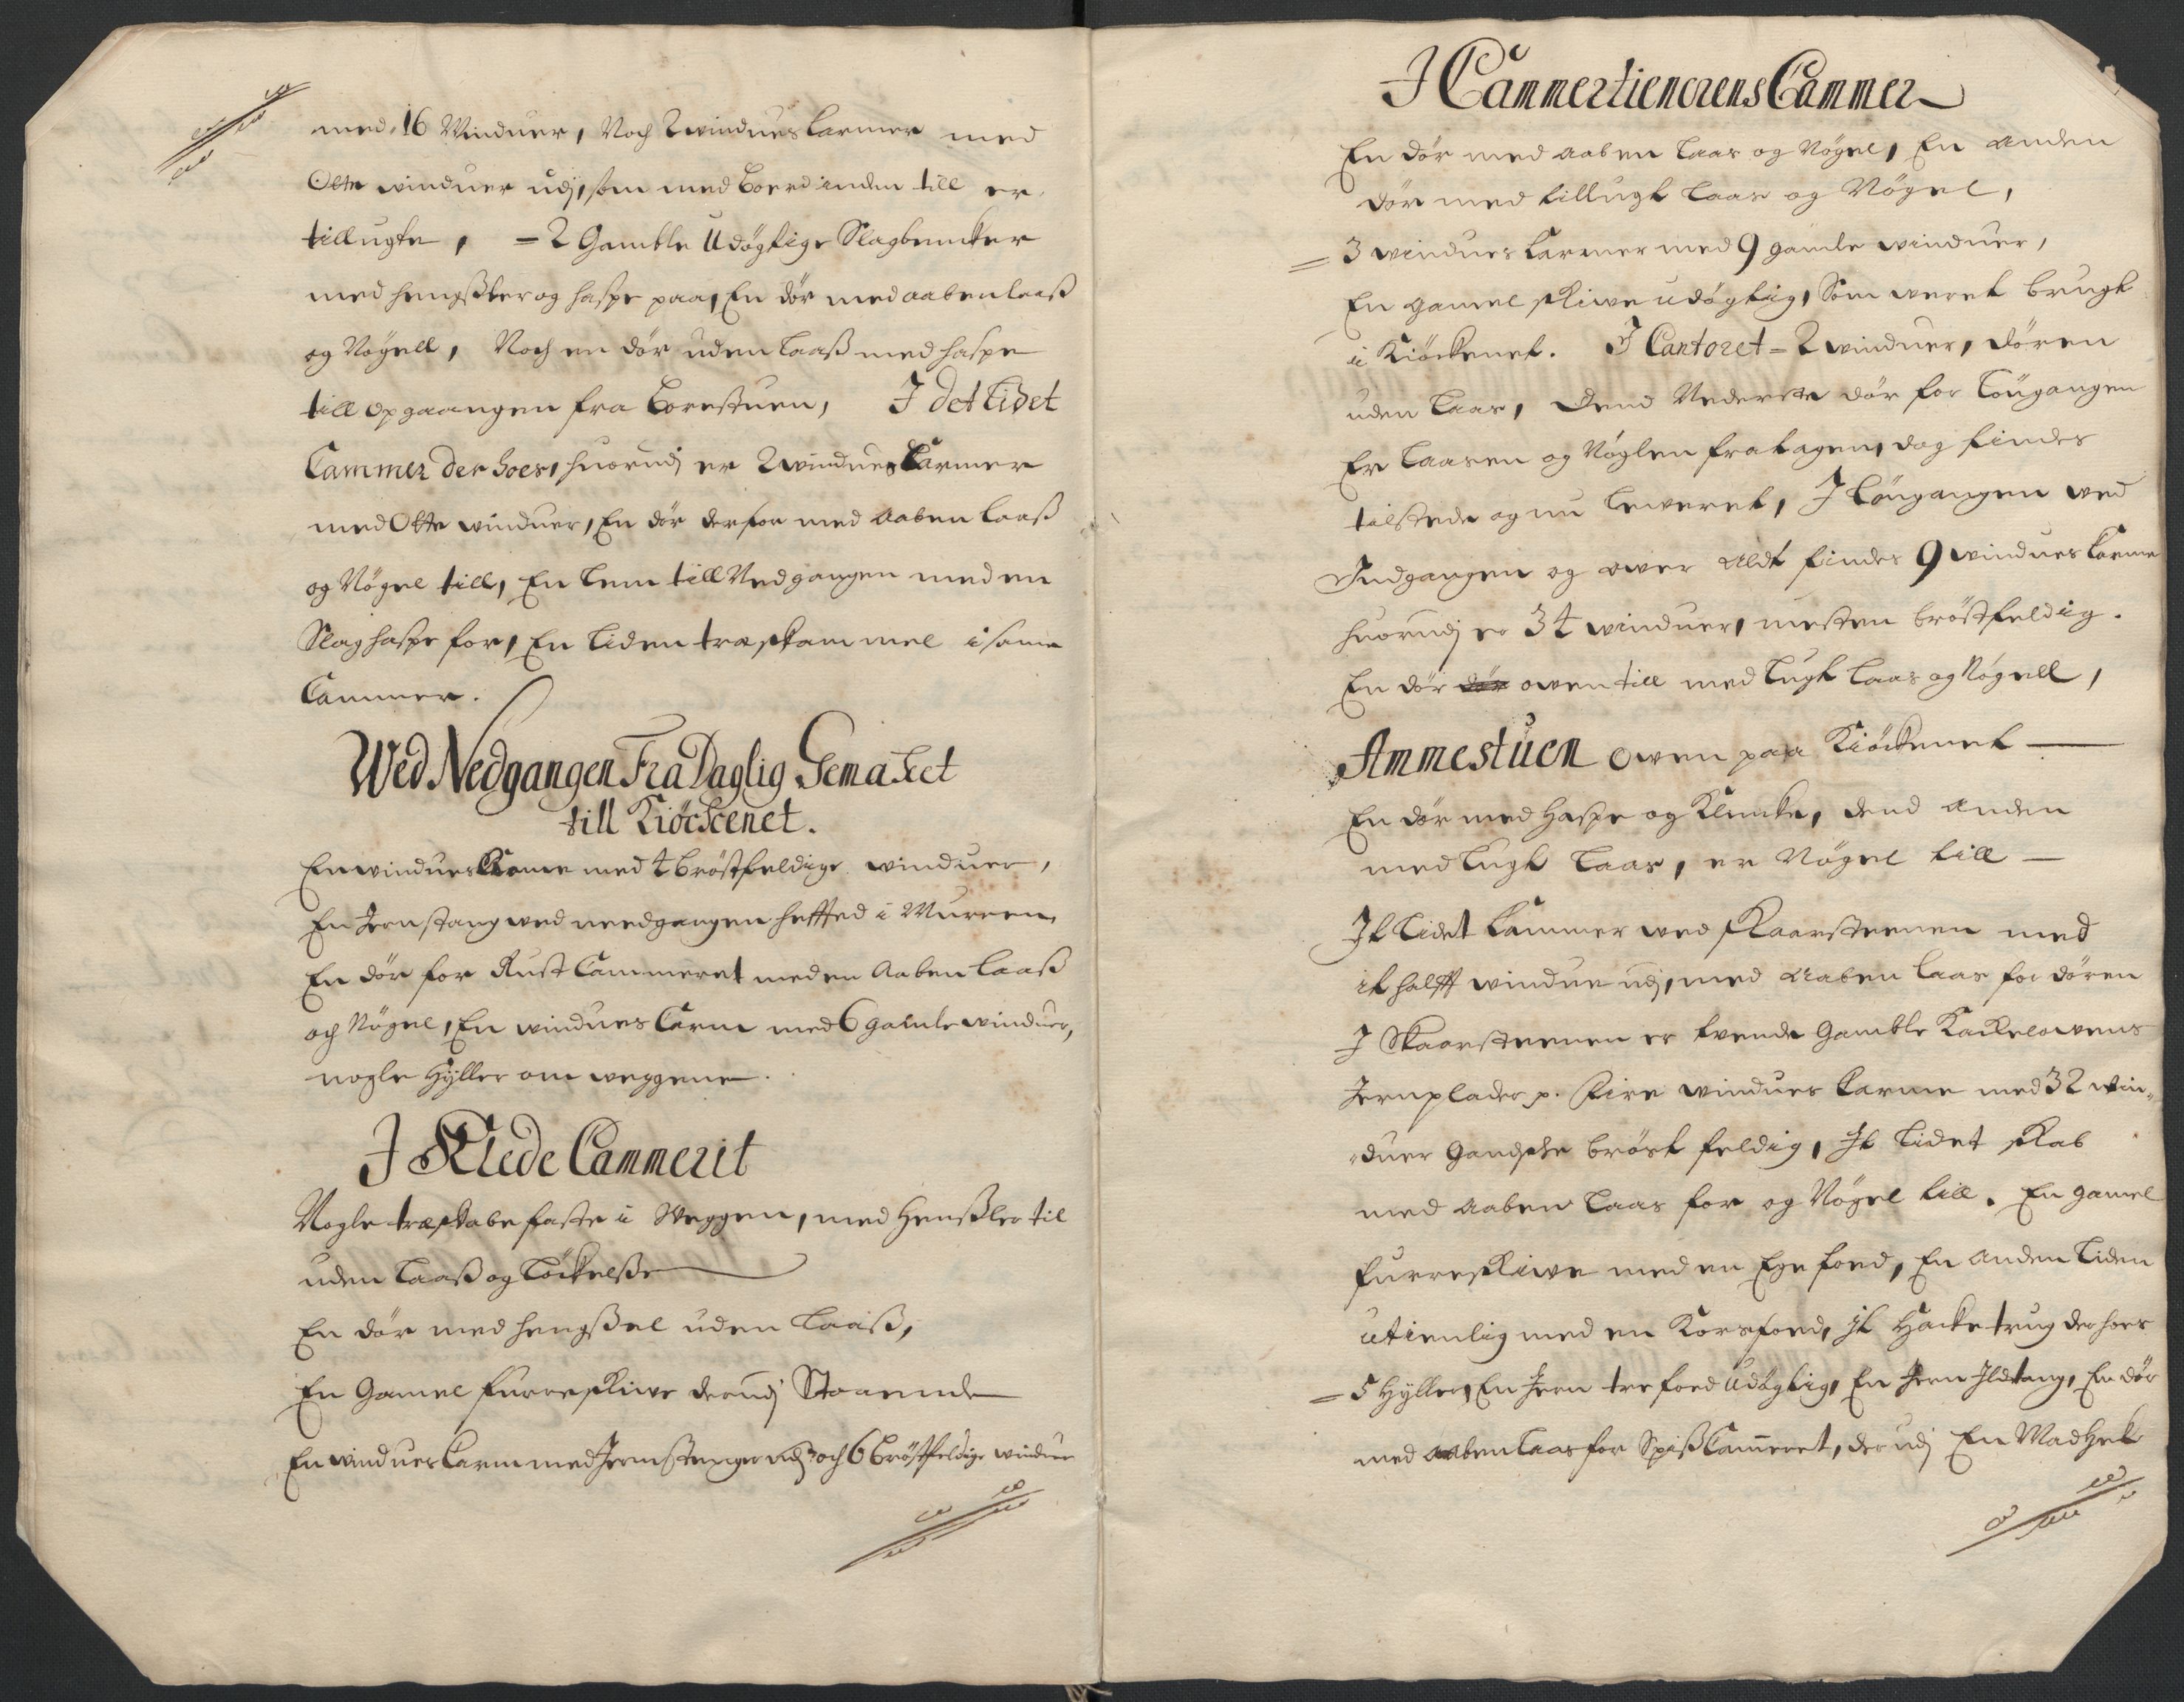 med 16 Vinduer, Noch 2 vindues Carmer med
Otte vinduer udj, som med Boerd inden till er
tillugte, = 2 Gamble Udøgtige Slagbencker
med hengßler og haspe paa, En dør med aaben laaß
og Nøgell, Noch en dør uden Laaß med haspe
till opgaangen fra Borestuen, I det Lidet
Cammer der hoes, huorudj er 2 vindues Carmer
med Otte vinduer, En dør derfor med Aaben laaß
og Nøgel till, En Lem till Nedgangen med en
Slaghaspe for, En Liden træskammel i samme
Cammer.
Wed Nedgangen Fra Daglig Gemaket
till Kiøckenet.
En vindues Karme med 4 brøstfeldige vinduer,
En Jern stang wed needgangen hefted i Muren,
En dør for Rust Cammeret med en Aaben Laaß
och Nøgel, En vindues Carm med 6 gamle vinduer,
nogle Hyller om weggene.
I Klede Cammerit
Nogle træskabe faste i Weggen, med Henßler til
uden Laaß og Løckelße
En dør med hengßel uden Laaß,
En Gamel furre skive derudj Staaende
En vindues Carm med Jernstenger udj och 6 Brøstfeldige vinduer
I Cammertienerens Cammer
En dør med aaben Laas og Nøgel, En anden
dør med tillugt Laas og Nøgel,
= 3 vindues Karmer med 9 gamle vinduer,
En gamel skive udøgtig, Som veret brugt
i Kiøckenet. I Cantoret = 2 vinduer, døren
uden Laas, Dend Nederste dør for Løngangen
Er Laasen og Nøglen fratagen, dog findes
tilstede og nu leveret, I Løngangen ved
Indgangen og over aldt findes 9 vindues Karme
huorudj er 34 vinduer, mesten brøstfeldig.
En dør dør oven till med Lugt Laas og Nøgell,
Ammestuen Oven paa Kiøckenet
En dør med Haspe og Klincke, dend anden
med Lugt Laas, er Nøgel till
It Lidet Kammer ved Skaarsteenen med
it halfft vindue udj, med aaben laas for døren
I Skaarsteenen er tvende Gamble Kackelovens
Jernplader p. Fire vindues Karme med 32 vin-
duer Gandske brøst feldig, It Lidet skab
med aaben Laas for og Nøgel till. En gamel
furre skive med en Ege foed, En anden Liden
utienlig med en Korsfoed, it Hacketrug der hoes
= 5 Hyller, En Jern trefoed Udøgtig, En Jern Ildtang, En dør
med aaben laas for Spißkameret, derudj En Mad Hek